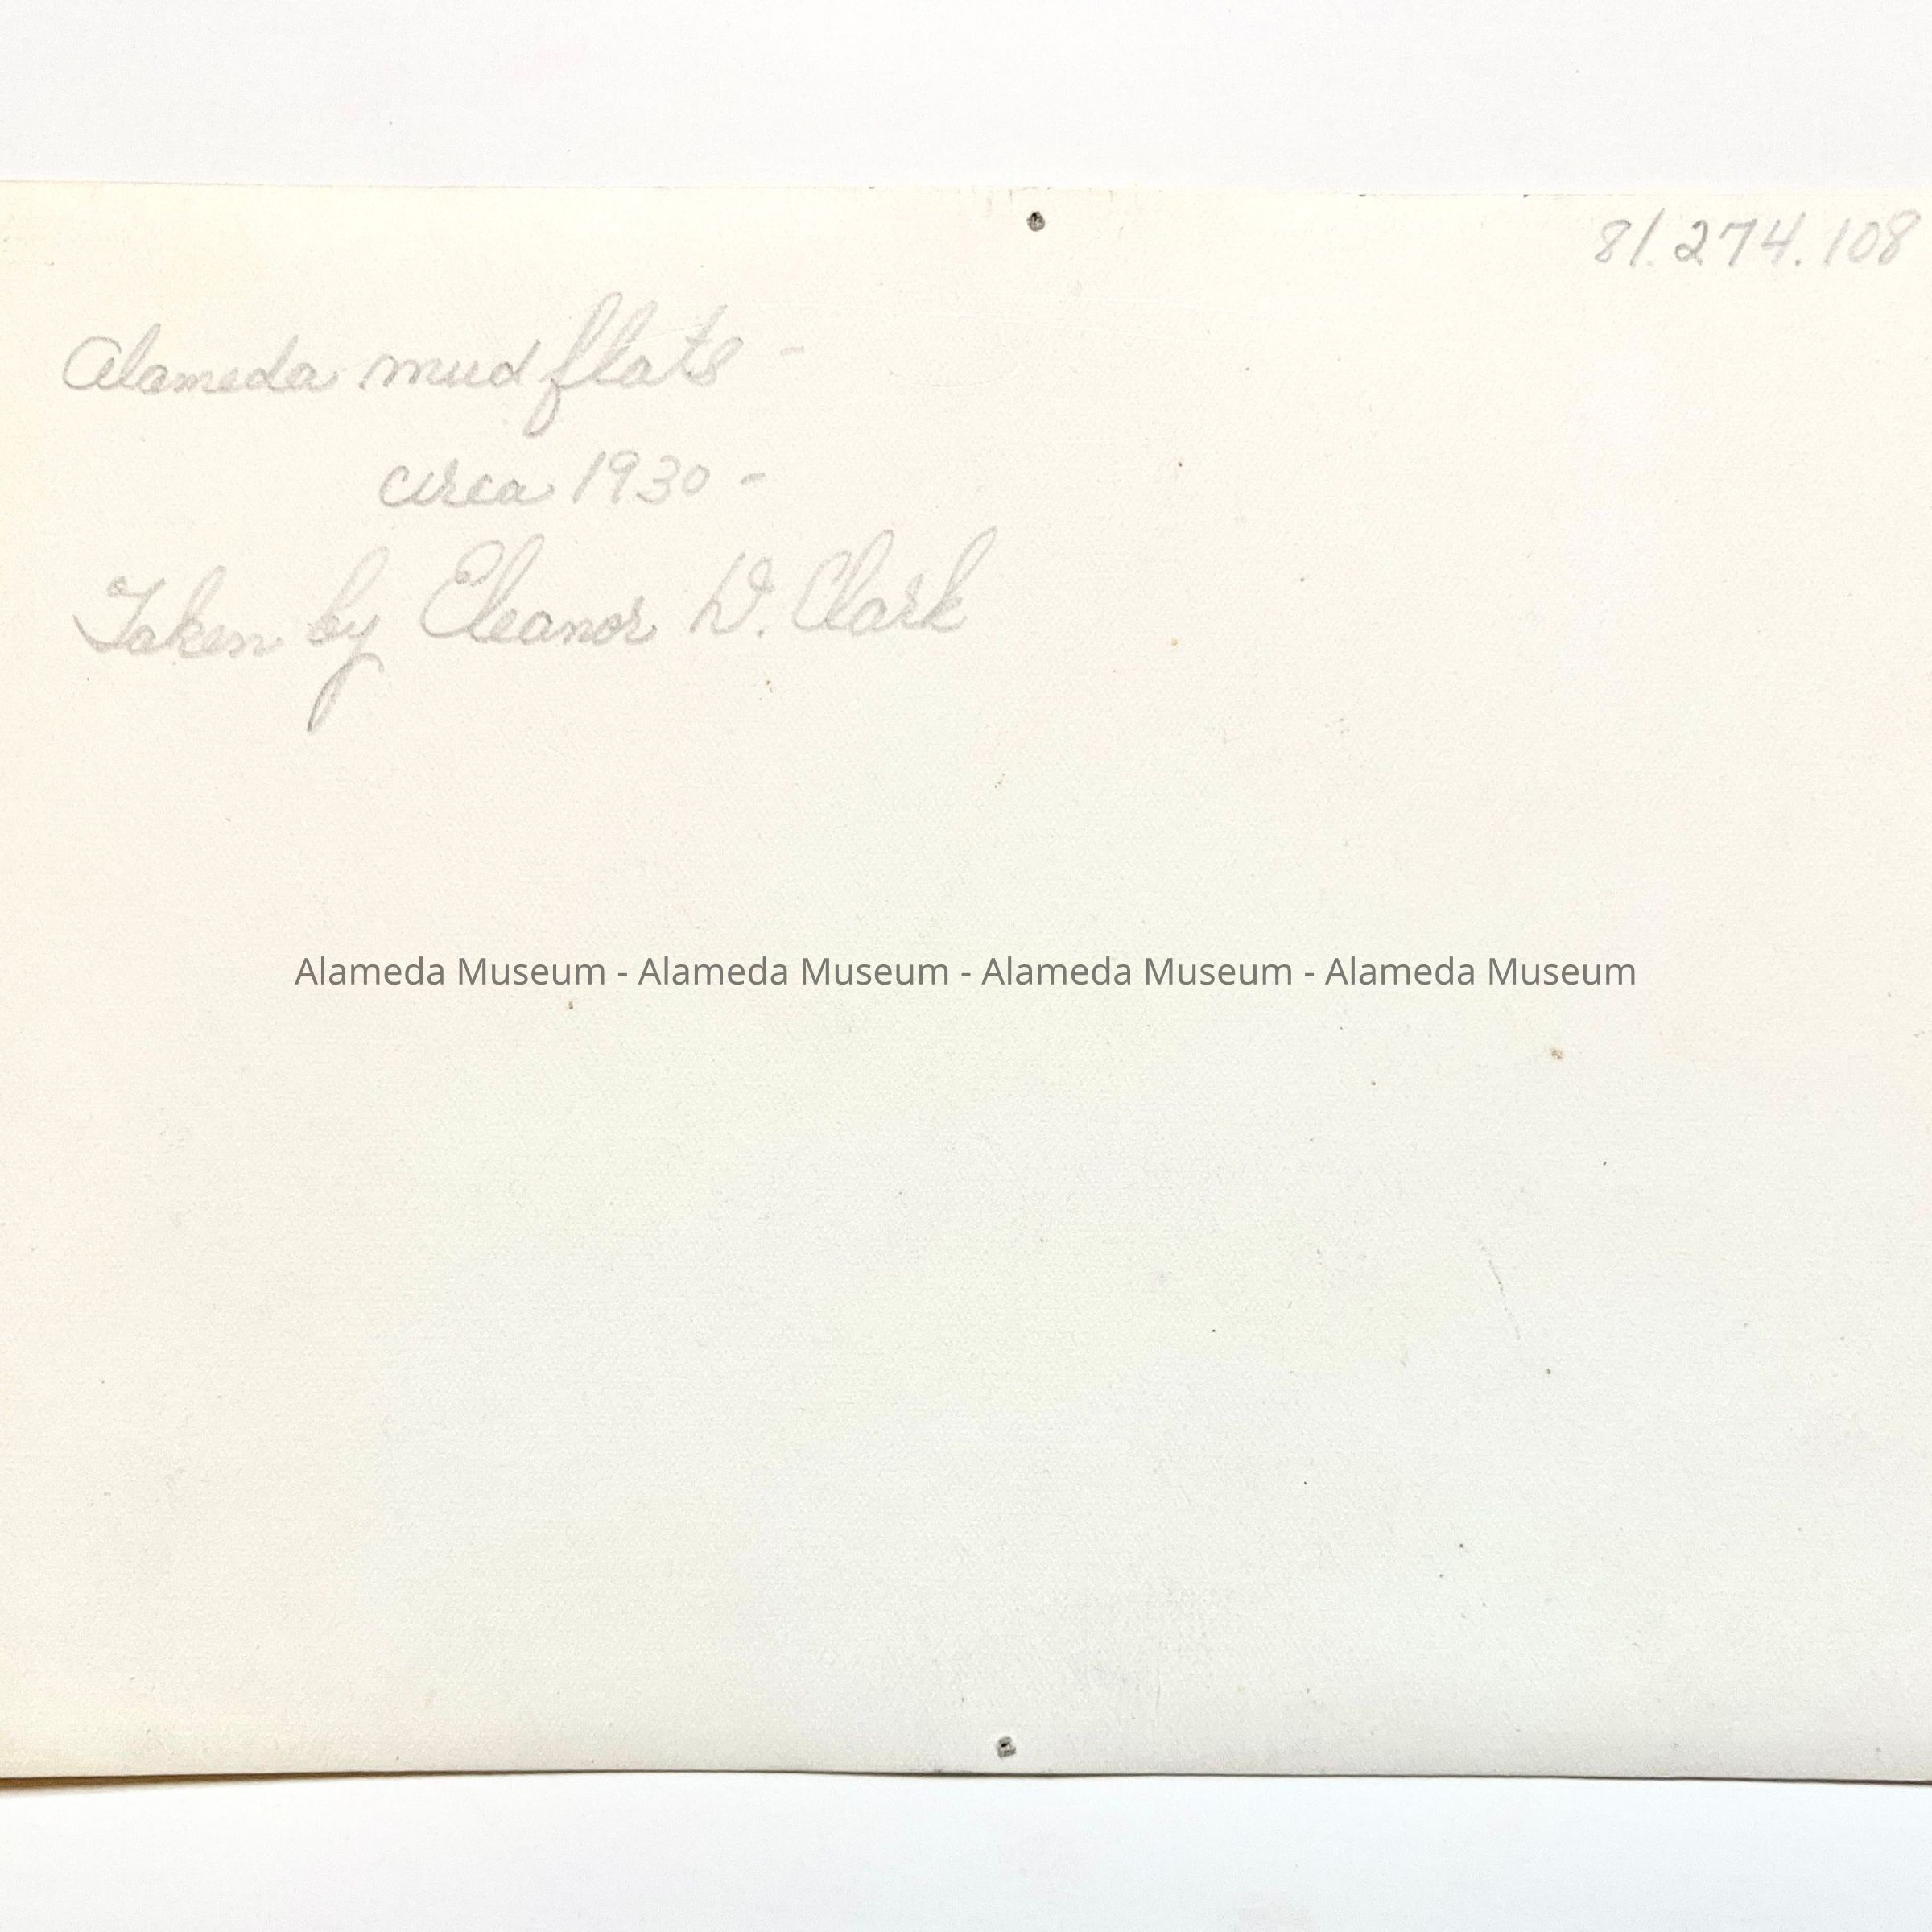 81.274.108
Alameda mud flats -
circa 1930 -
Taken by Eleanor W. Clark
Alameda Museum - Alameda Museum - Alameda Museum - Alameda Museum